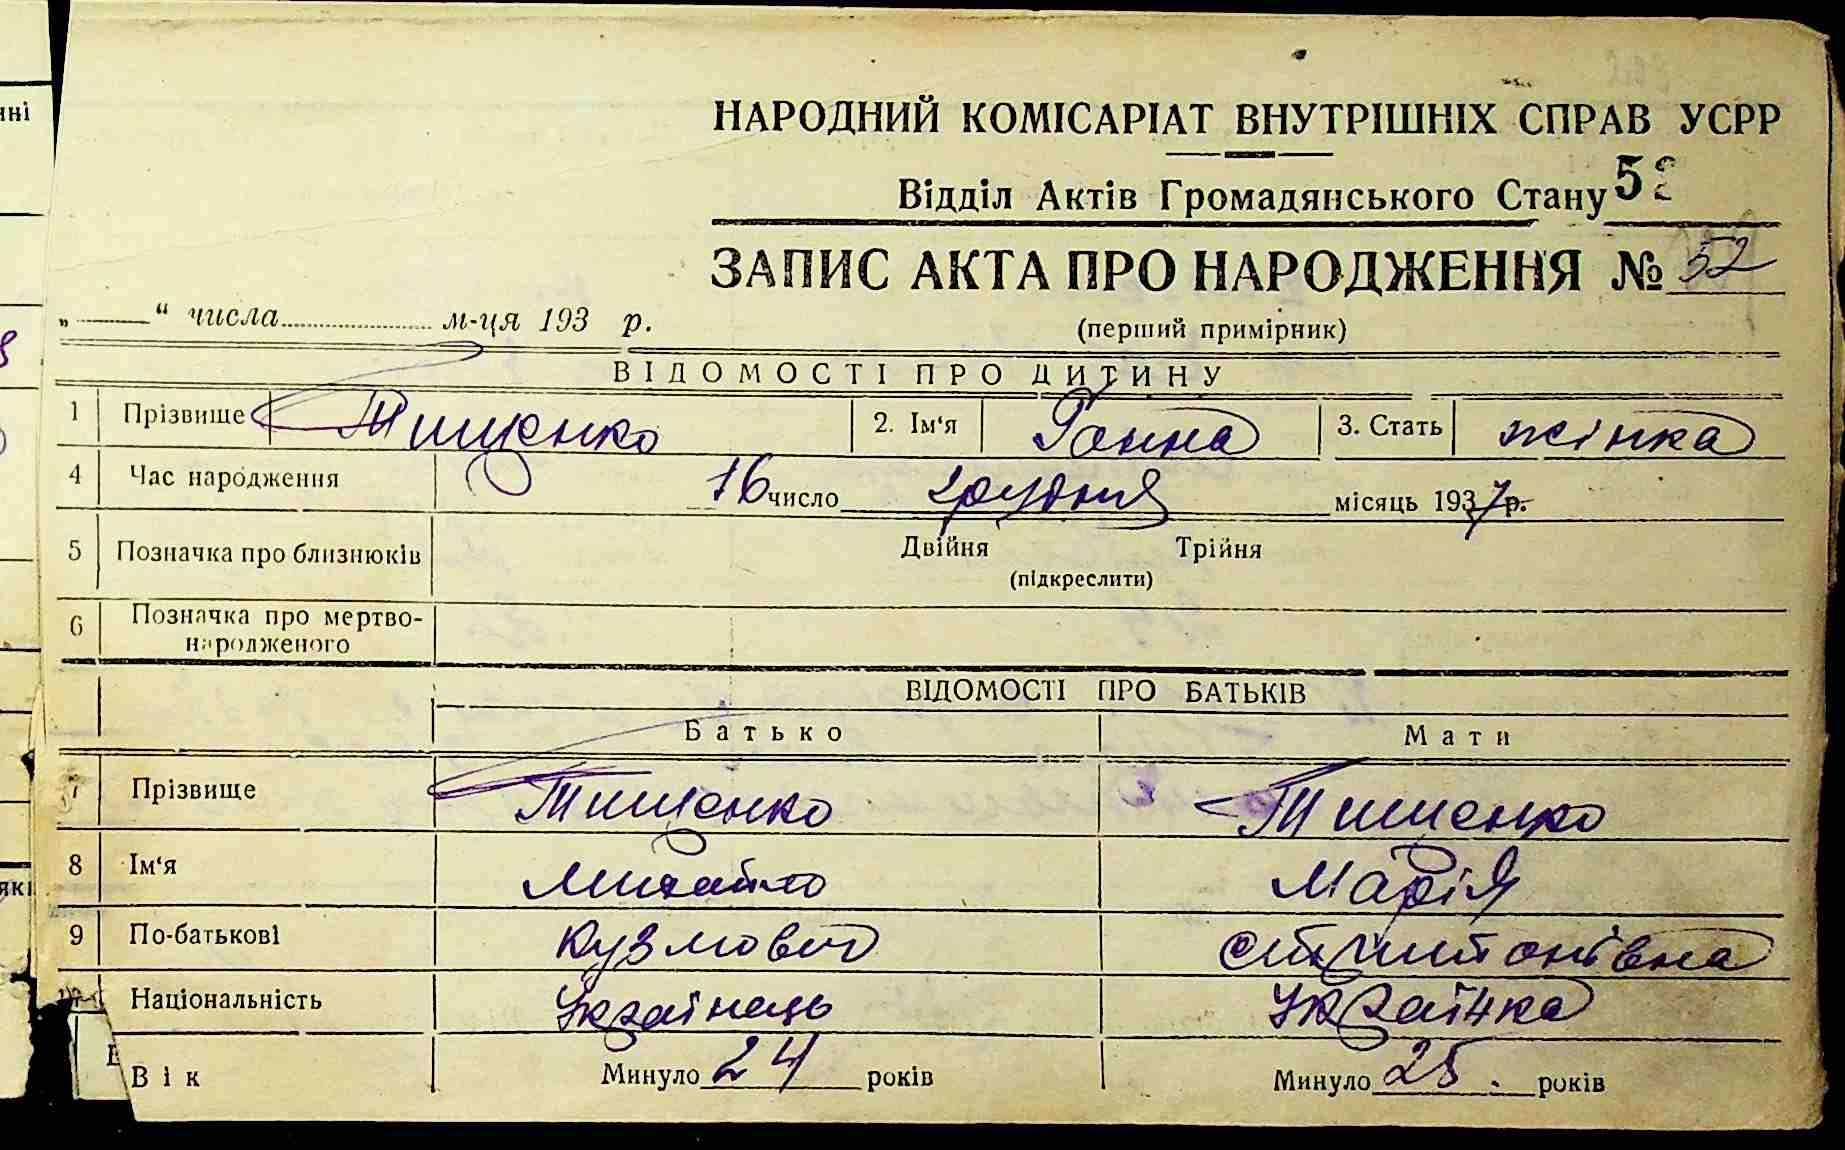 НАРОДНИЙ КОМІСАРІАТ ВНУТРІШНІХ СПРАВ УСРР
Відділ Актів Громадянського Стану 52
ЗАПИС АКТА ПРО НАРОДЖЕННЯ № 52
„ “ числа м-ця 193 р.
(перший примірник)
ВІДОМОСТІ ПРО ДИТИНУ
1 Прізвище Тищенко 2. Ім‘я Ганна 3. Стать жінка
4 Час народження 16 число грудня місяць 1937 р.
5 Позначка про близнюків Двійня Трійня
(підкреслити)
6 Позначка про мертво-
народженого
ВІДОМОСТІ ПРО БАТЬКІВ
Батько Мати
7 Прізвище Тищенко Тищенко
8 Ім‘я Михайло Марія
9 По-батькові Кузмович
Національність Українець Українка
Вік Минуло 24 років Минуло 25 років